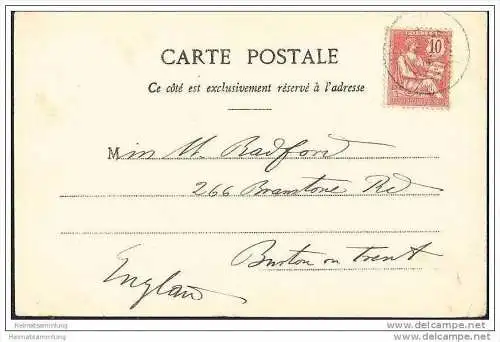 CARTE POSTALE
POSTES
10
Ce côté est exclusivement réservé à l'adresse
Miss M. Radford
266 Branstone Rd
Burton on Trent
England
Heimatsammlung
www.heimatsammlung.de